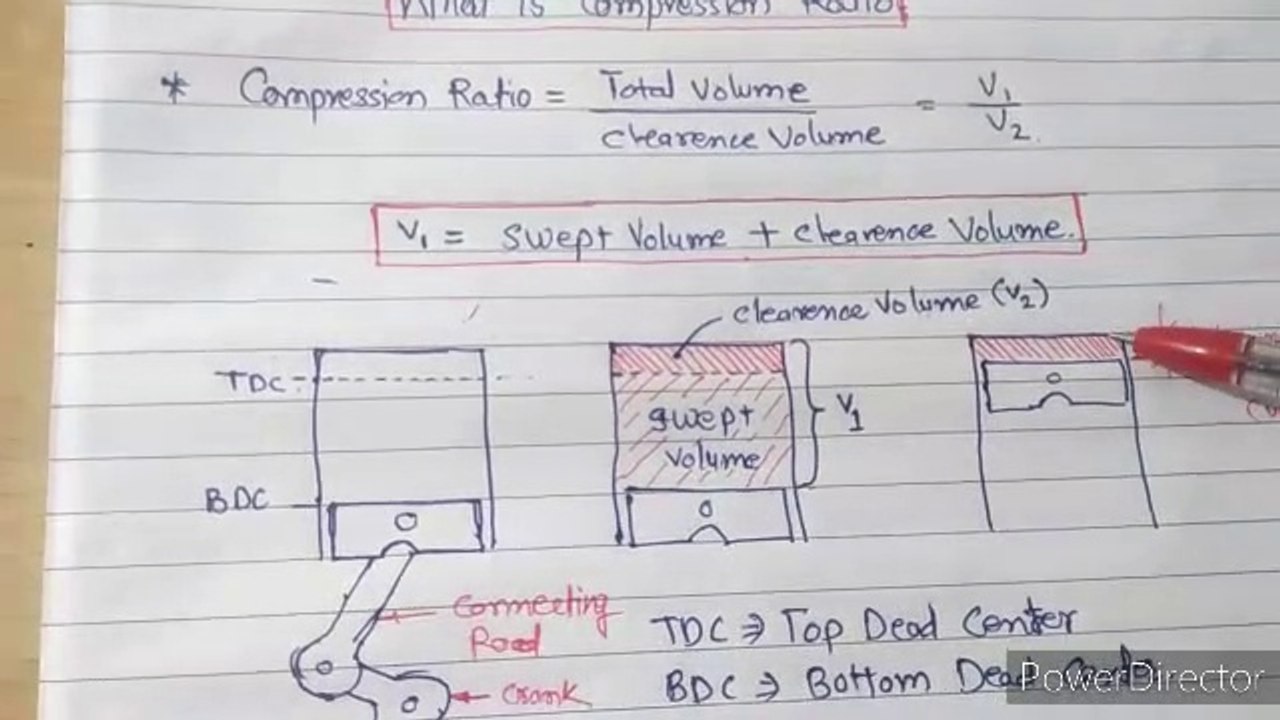 What is Compression Ratio
* Compression Ratio = Total Volume / Clearence Volume = V1 / V2.
V1 = Swept Volume + Clearence Volume.
Clearence Volume (V2)
TDC
Swept
Volume
V1
BDC
Connecting
Road
TDC ⇒ Top Dead Center
Crank
BDC ⇒ Bottom Dead
PowerDirector